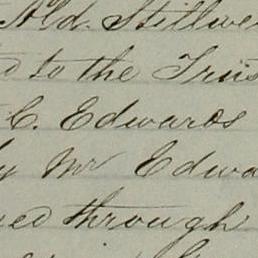 Ald. Stillwe
d to the Trus
C. Edwards
y Mr Edwa
ed through